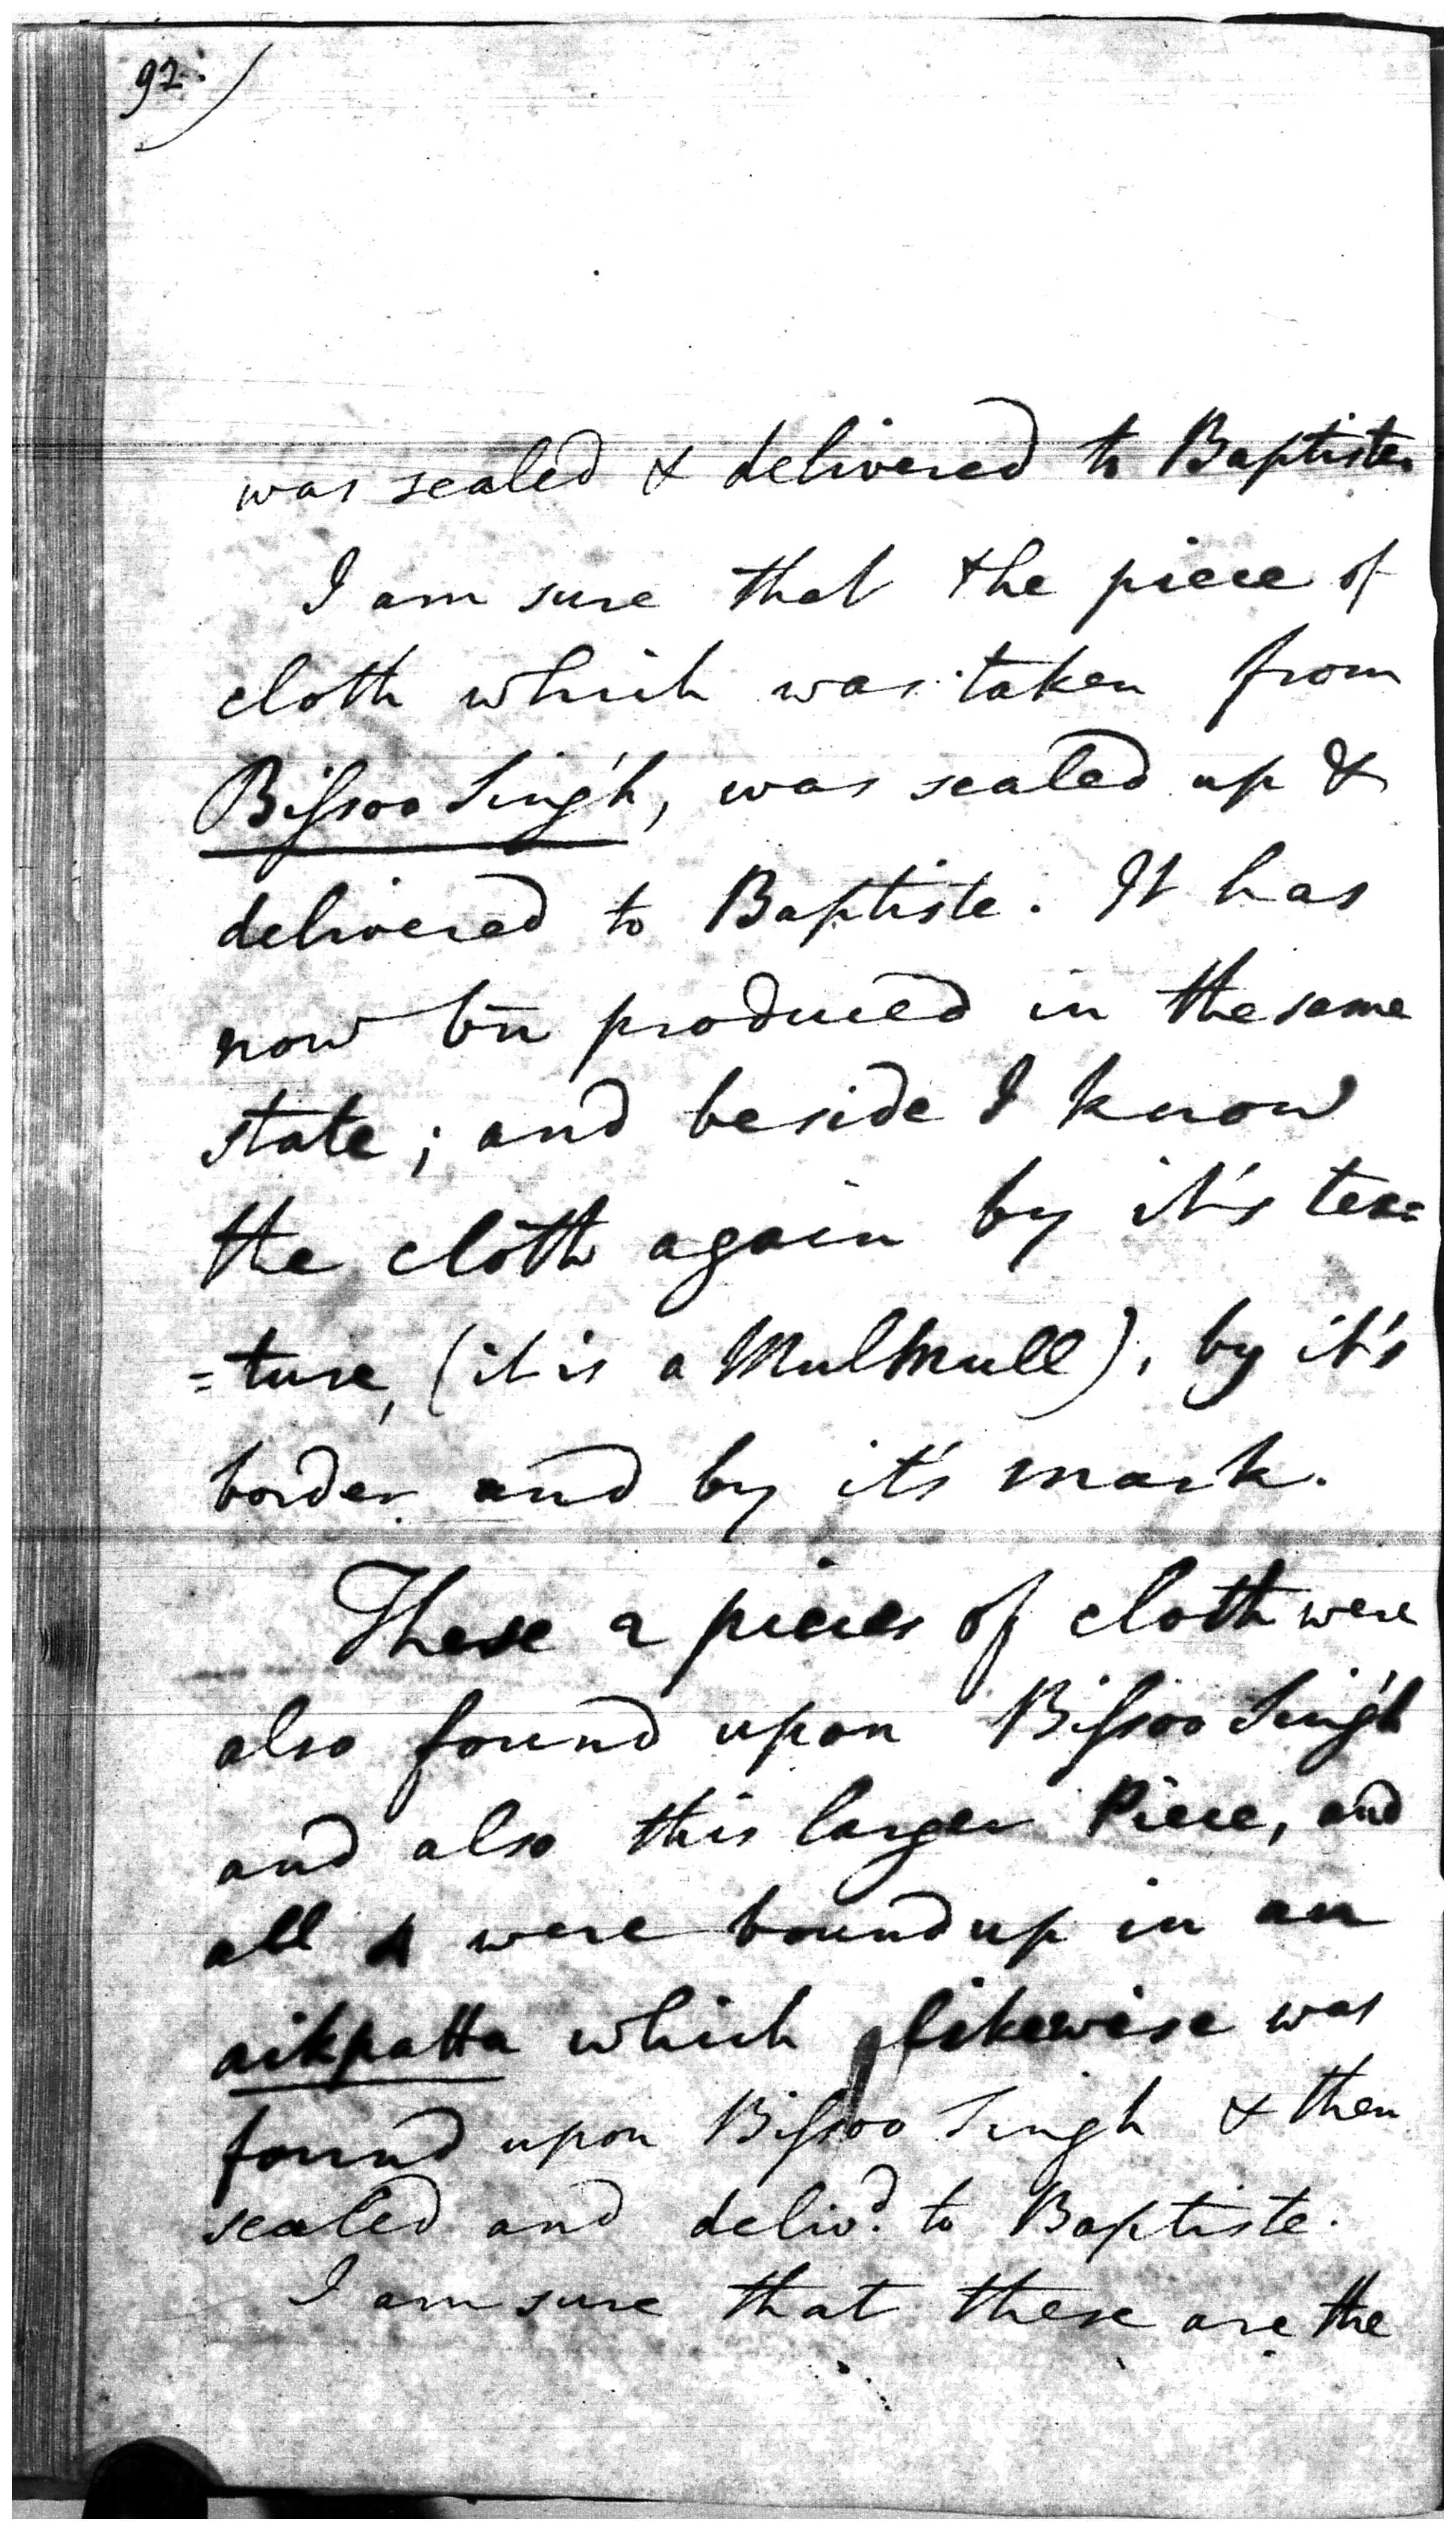 92.)
was sealed & delivered to Baptiste.
I am sure that the piece of
cloth which was taken from
Bissoo Sing'h, was sealed up &
delivered to Baptiste. It has
now bn produced in the same
state; and beside I know
the cloth again by it's tex=
=ture, (it is a Mulmull), by it's
border and by it's mark.
These 2 pieces of cloth were
also found upon Bissoo Sing'h
and also this larger Piece, and
all 4 were bound up in an
aikpatta which likewise was
found upon Bissoo Singh & then
sealed and delivd. to Baptiste.
I am sure that these are the